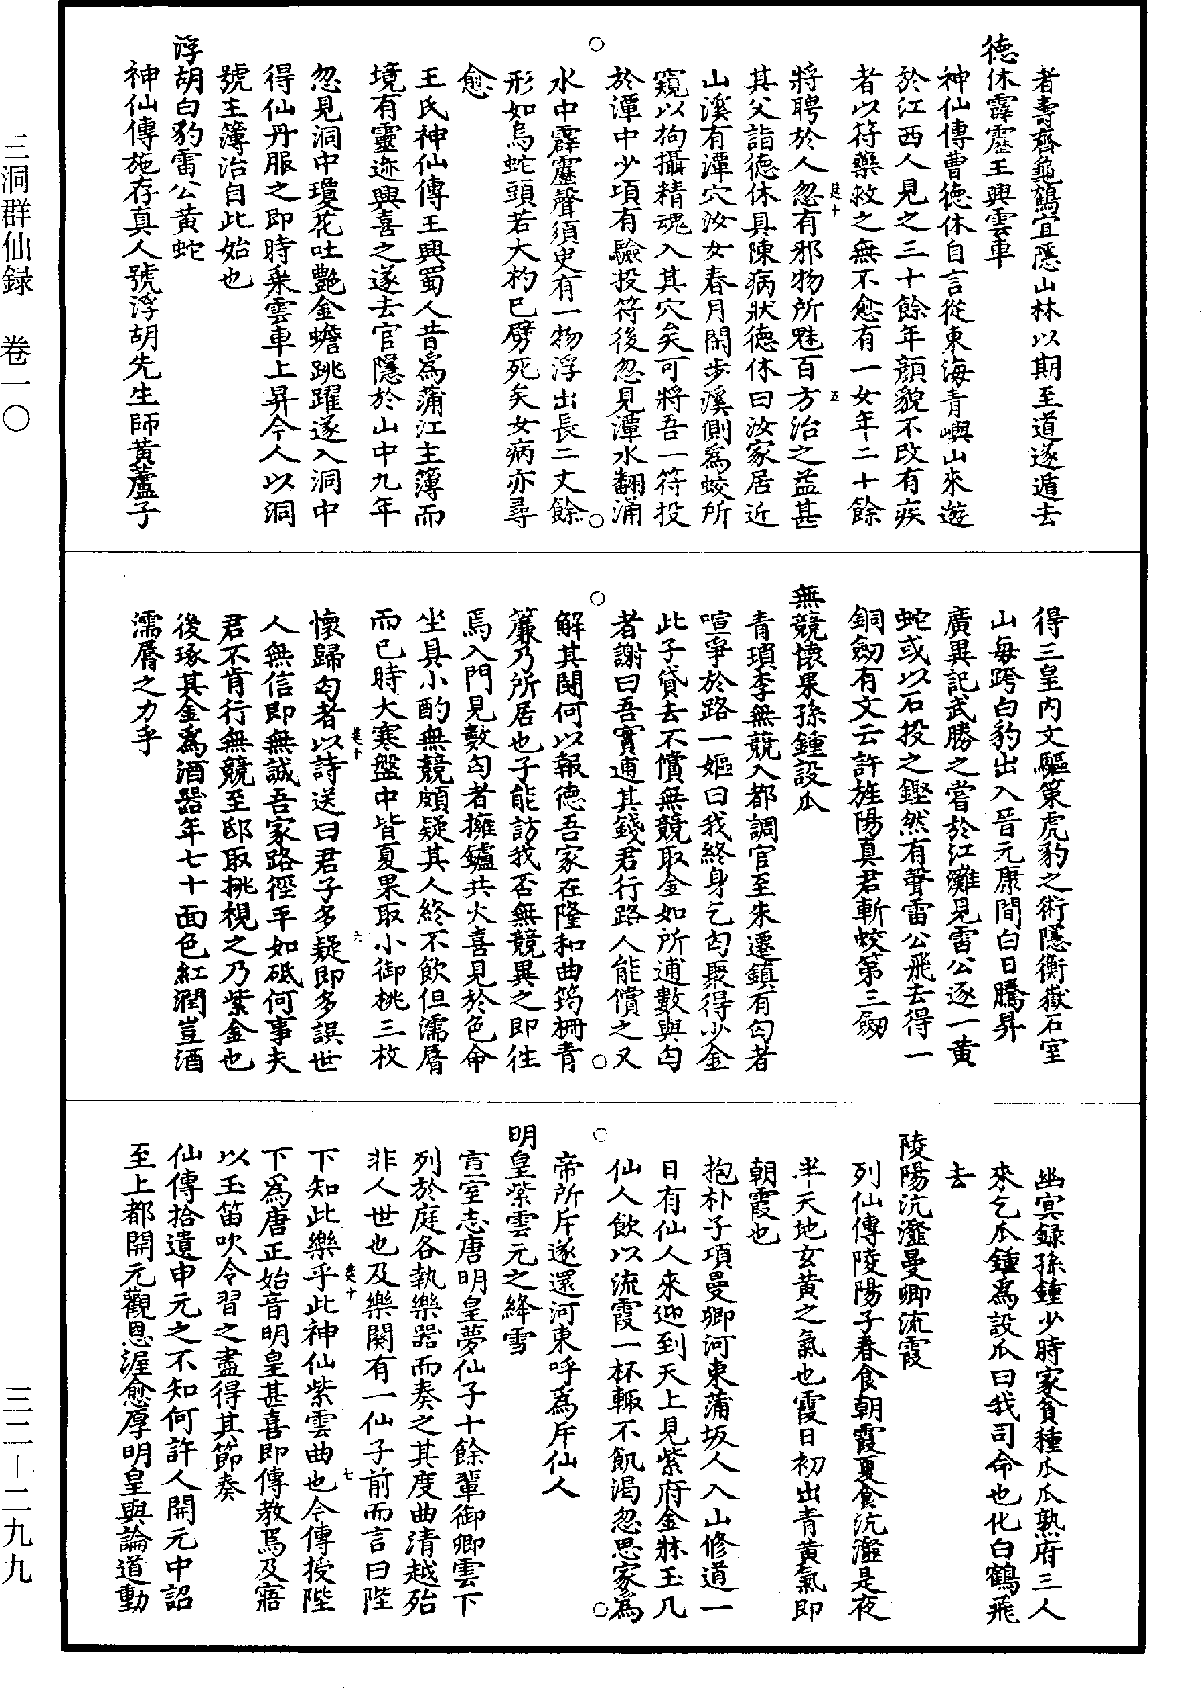 者壽齊龜鶴宜隱山林以期至道遂遁去
德休霹靂王興雲車
神仙傳曹德休自言從東海青嶼山來遊
於江西人見之三十餘年顏貌不改有疾
者以符藥救之無不愈有一女年二十餘
將聘於人忽有邪物所魅百方治之益甚
其父詣德休具陳病狀德休曰汝家居近
山溪有潭穴汝女春月閑步溪側爲蛟所
窺以拘攝精魂入其穴矣可將吾一符投
於潭中少項有驗投符後忽見潭水翻涌
水中霹靂聲須臾有一物浮出長二丈餘
形如烏蛇頭若大杓已劈死矣女病亦尋
愈
王氏神仙傳王興蜀人昔爲蒲江主簿而
境有靈迹興喜之遂去官隱於山中九年
忽見洞中瓊花吐艷金蟾跳躍遂入洞中
得仙丹服之即時乘雲車上昇今人以洞
號主簿治自此始也
浮胡白豹雷公黃蛇
神仙傳施存真人號浮胡先生師黃蘆子
得三皇內文驅策虎豹之術隱衡嶽石室
山每跨白豹出入晉元康間白日騰昇
廣異記武勝之嘗於江灘見雷公逐一黃
蛇或以石投之鏗然有聲雷公飛去得一
銅劒有文云許旌陽真君斬蛟第三劒
無競懷果孫鍾設瓜
青瑣李無競入都調官至朱遷鎮有匄者
喧爭於路一嫗曰我終身乞匄聚得少金
此子貸去不償無競取金如所逋數與匄
者謝曰吾實逋其錢君行路人能償之又
解其鬪何以報德吾家在隆和曲筠柵青
簾乃所居也子能訪我否無競異之即往
焉入門見數匄者擁鑪共火喜見於色命
坐具小酌無競頗疑其人終不飲但濡脣
而已時大寒盤中皆夏果取小御桃三枚
懷歸匄者以詩送曰君子多疑即多誤世
人無信即無誠吾家路徑平如砥何事夫
君不肯行無競至邸取桃視之乃紫金也
後琢其金爲酒器年七十面色紅潤豈酒
濡脣之力乎
幽冥録孫鍾少時家貧種瓜瓜熟府三人
來乞瓜鍾爲設瓜曰我司命也化白鶴飛
去
陵陽沆瀣曼卿流霞
列仙傳陵陽子春食朝霞夏食沆瀣是夜
半天地玄黃之氣也霞日初出青黃氣即
朝霞也
抱朴子項曼卿河東蒲坂人入山修道一
日有仙人來迎到天上見紫府金牀玉几
仙人飲以流霞一杯輒不飢渴忽思家爲
帝所斥遂還河東呼爲斥仙人
明皇紫雲元之絳雪
宣室志唐明皇夢仙子十餘輩御卿雲下
列於庭各執樂器而奏之其度曲清越殆
非人世也及樂闋有一仙子前而言曰陛
下知此樂乎此神仙紫雲曲也今傳授陛
下爲唐正始音明皇甚喜即傳教焉及寤
以玉笛吹令習之盡得其節奏
仙傳拾遺申元之不知何許人開元中詔
至上都開元觀恩渥愈厚明皇與論道動
三洞群仙録　卷一〇
三二—二九九